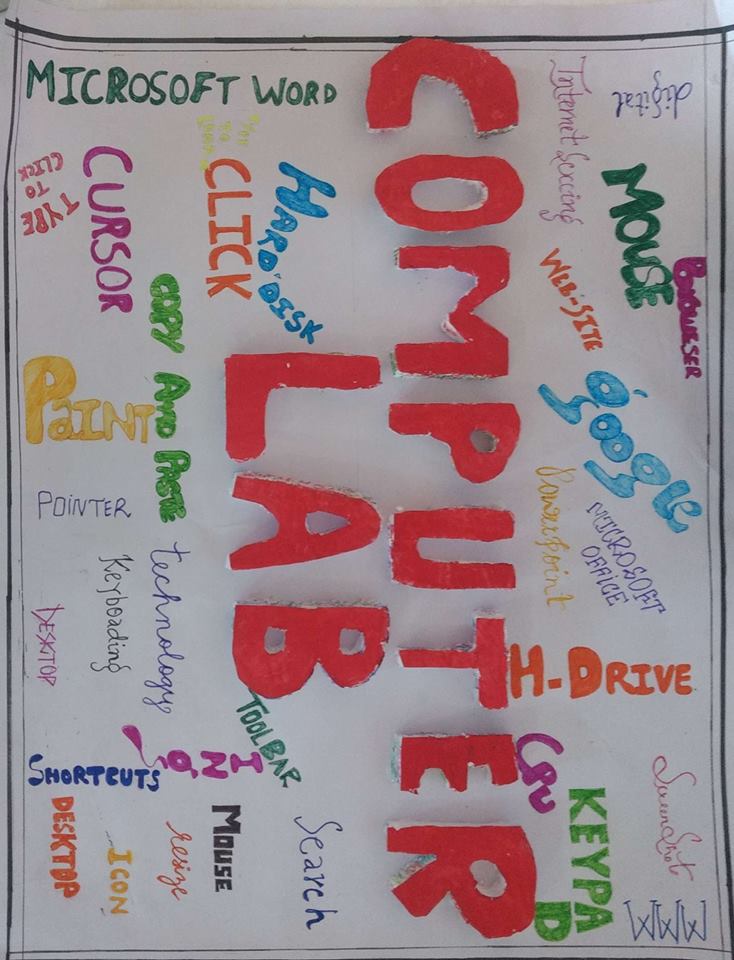 digital
MOUSE
BROWESER
google
MICROSOFT
OFFICE
H-DRIVE
ScreenShot
WWW
Internet
WEB-SITE
Powerpoint
CPU
KEYPAD
COMPUTER
LAB
MICROSOFT WORD
HARD DISK
CLICK
TOOLBAR
Search
CURSOR
COPY AND PASTE
technology
MOUSE
resize
TYPE
TO
CLICK
PAINT
POINTER
Keyboading
DESKTOP
SHORTCUTS
ICON
DESKTOP